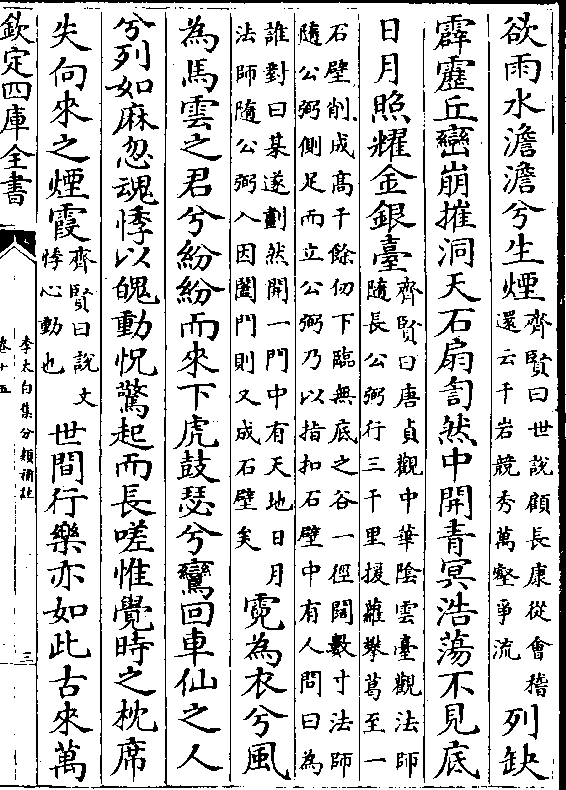 欲雨水澹澹兮生煙齊賢曰世說顧長康從會稽還云千岩競秀萬壑爭流列缺
霹靂丘巒崩摧洞天石扇訇然中開青冥浩蕩不見底
日月照耀金銀臺齊賢曰唐貞觀中華陰雲臺觀法師隨長公弼行三千里援蘿攀葛至一
石壁削成髙千餘仞下臨無底之谷一徑闊數寸法師隨公弼側足而立公弼乃以指扣石壁中有人問曰為
誰對曰某遂劃然開一門中有天地日月法師隨公弼入因闔門則又成石壁矣霓為衣兮風
為馬雲之君兮紛紛而來下虎鼓瑟兮鸞回車仙之人
兮列如麻忽魂悸以魄動怳驚起而長嗟惟覺時之枕席
失向來之煙霞齊賢曰說文悸心動也世間行樂亦如此古來萬
欽定四庫全書
李太白集分類補註
卷十五
三